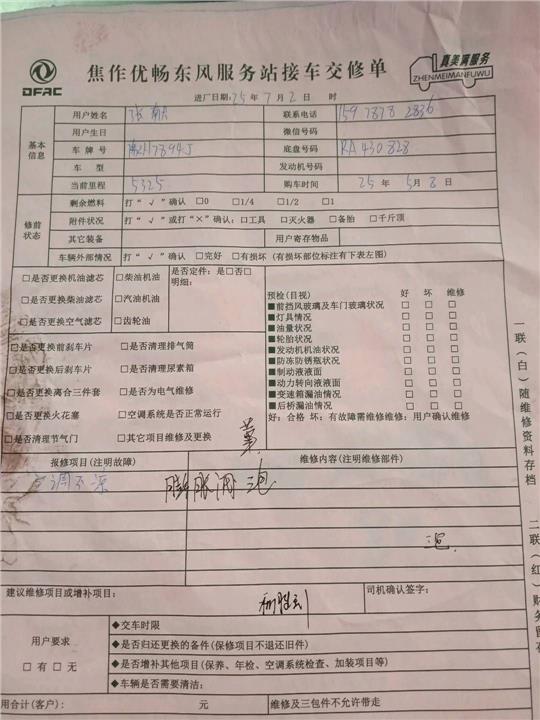 DFAC
焦作优畅东风服务站接车交修单
真美满服务
ZHENMEIMANFUWU
进厂日期:25年7月2日 时
基本信息
用户姓名
联系电话 159 7878 2836
用户生日
微信号码
车牌号
底盘号码 RA430828
车型
发动机号码
当前里程 5325
购车时间 25年5月8日
修前状态
剩余燃料 打“√”确认 □0 □1/4 □1/2 □1
附件状况 打“√”或打“×”确认:□工具 □灭火器 □备胎 □千斤顶
其它装备
用户寄存物品
车辆外部情况 打“√”确认 □完好 □有损坏(有损坏部位标注有下表左图)
□是否更换机油滤芯 □柴油机油
□是否更换柴油滤芯 □汽油机油
□是否更换空气滤芯 □齿轮油
是否定件:是□否□
明细:
□是否更换前刹车片 □是否清理排气筒
□是否更换后刹车片 □是否清理尿素箱
□是否更换离合三件套 □是否为电气维修
□是否更换火花塞 □空调系统是否正常运行
□是否清理节气门 □其它项目维修及更换
预检(目视) 好 坏 维修
■前挡风玻璃及车门玻璃状况 □ □ □
■灯具情况 □ □ □
■油量状况 □ □ □
■轮胎状况 □ □ □
■发动机机油状况 □ □ □
■防冻防锈瓶状况 □ □ □
■制动液液面 □ □ □
■动力转向液液面 □ □ □
■变速箱漏油情况 □ □ □
■后桥漏油情况 □ □ □
好:合格 坏:有故障需维修维修:用户确认维修
报修项目(注明故障)
维修内容(注明维修部件)
调不凉
膨胀阀
三包
三包.
建议维修项目或增补项目:
司机确认签字:
用户要求
□有□无
◆交车时限
◆是否归还更换的备件(保修项目不退还旧件)
◆是否增补其他项目(保养、年检、空调系统检查、加装项目等)
◆车辆是否需要清洁:
用合计(客户): 元
维修及三包件不允许带走
一联(白)随维修资料存档
二联(红)财务留存